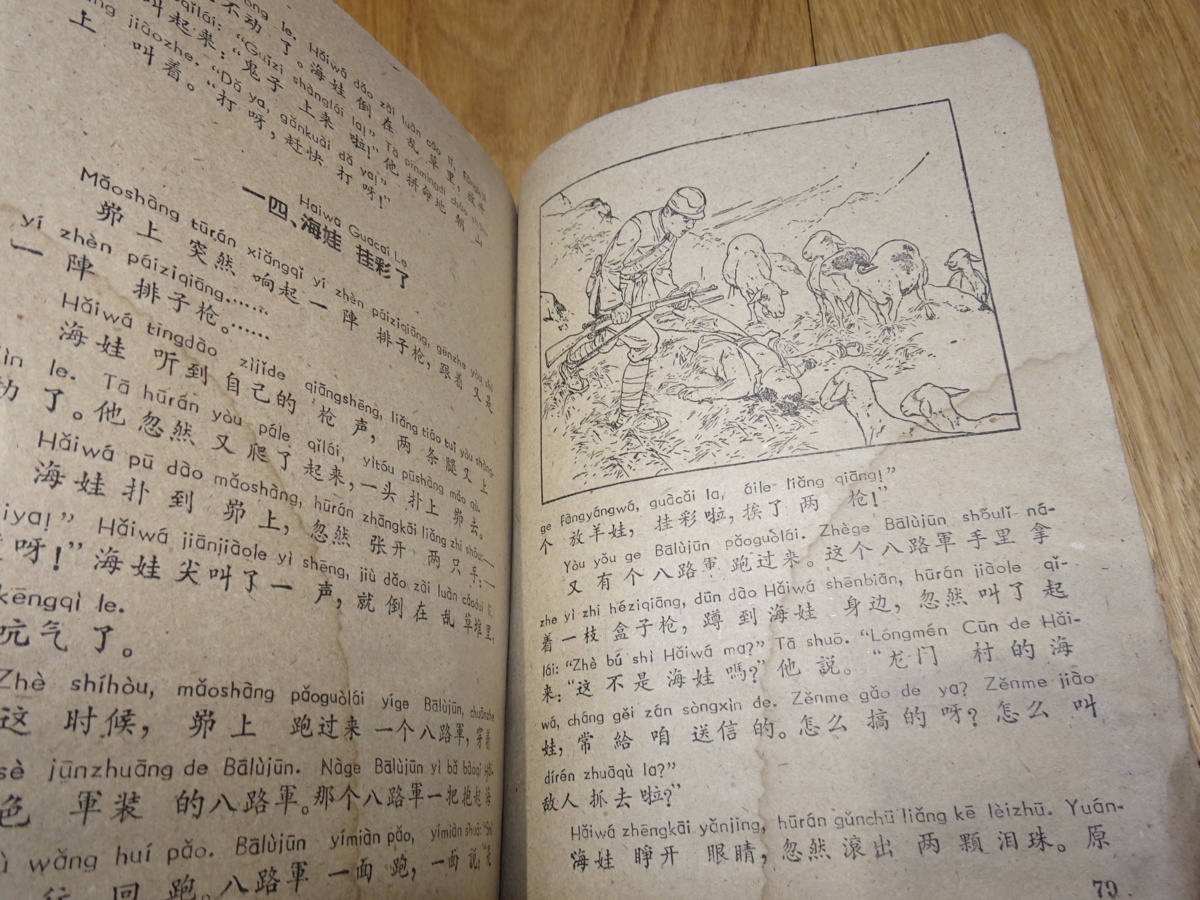 òng le. Hǎiwá dǎo zài luàn cǎo lǐ,
不动了。海娃倒在乱草里,
qǐlái: "Guǐzi shànglái la!" Tā pīnmìngdì
叫起来:"鬼子上来啦!"他拼命地朝山
jiàozhe, "Dǎ ya, gǎnkuài dǎ ya!"
上叫着。"打呀,赶快打呀!"
Hǎiwá Guàcǎi Le
一四、海娃 挂彩了
Mǎoshàng tūrán xiǎngqǐ yí zhèn páiziqiāng, gēnzhe yòu shì
峁上 突然 响起一 陣 排子枪,跟着 又是
yí zhèn páiziqiāng……
一 陣 排子枪。……
Hǎiwá tīngdào zìjǐde qiāngshēng, liǎng tiáo tuǐ yòu shàng-
海娃 听到 自己的 枪声,两 条 腿 又 上
jìn le. Tā hūrán yòu pále qǐlái, yìtóu pūshàng mǎo qù.
劲了。他 忽然 又 爬了 起来,一头 扑上 峁去。
Hǎiwá pū dào mǎoshàng, hūrán zhāngkāi liǎng zhī shǒu:—
海娃 扑到 峁上,忽然 张开 两 只 手:—
iya!" Hǎiwá jiānjiàole yì shēng, jiù dǎo zài luàn cǎoduī lǐ,
呀!"海娃 尖叫了一 声,就 倒在 乱 草堆里,
kēngqì le.
吭气 了。
Zhè shíhòu, mǎoshàng pǎoguòlái yíge Bālùjūn, chuānzhe
这 时候, 峁上 跑过来 一个八路軍,穿着
sè jūnzhuāng de Bālùjūn. Nàge Bālùjūn yì bǎ bàoqǐ Hǎi-
色 軍装 的八路軍。那个八路軍一把抱起海
wǎng huí pǎo. Bālùjūn yímiàn pǎo, yímiàn shuō:
往 回 跑。八路軍 一面 跑,一面 説:
ge fàngyángwá, guàcǎi la, áile liǎng qiāng!"
个 放羊娃,挂彩啦,挨了 两 枪!"
Yòu yǒu ge Bālùjūn pǎoguòlái. Zhège Bālùjūn shǒulǐ ná-
又 有 个 八路軍 跑过来。这个八路軍 手里 拿
zhe yì zhī héziqiāng, dūn dào Hǎiwá shēnbiān, hūrán jiàole qǐ-
着一枝 盒子枪,蹲 到 海娃 身边,忽然 叫了 起
lái: "Zhè bú shì Hǎiwá ma?" Tā shuō. "Lóngmén Cūn de Hǎi-
来:"这 不是 海娃 嗎?"他 説。"龙门 村 的 海
wá, cháng gěi zán sòngxìn de. Zěnme gǎo de ya? Zěnme jiào
娃,常 給 咱 送信 的。怎么 搞 的呀?怎么 叫
dírén zhuāqù la?"
敌人 抓去 啦?"
Hǎiwá zhēngkāi yǎnjing, hūrán gǔnchū liǎng kē lèizhū. Yuán-
海娃 睁开 眼睛,忽然 滚出 两 顆 泪珠。原
79